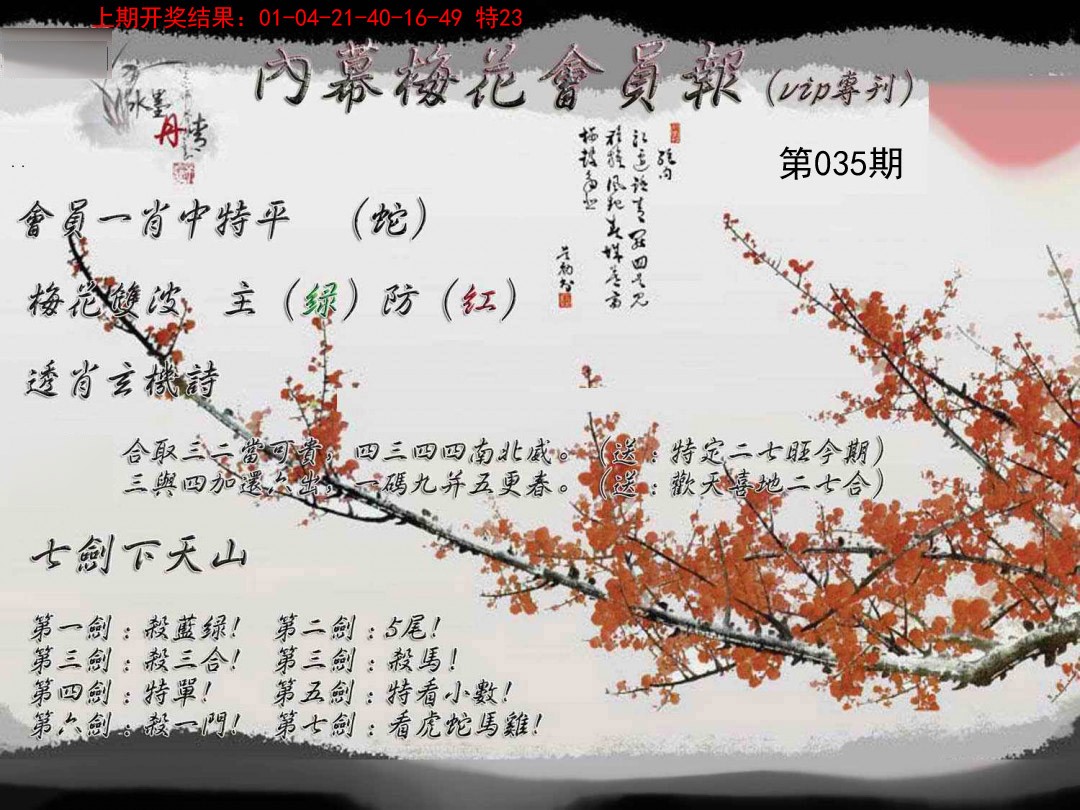 上期开奖结果：01-04-21-40-16-49 特23
內幕梅花會員報（vip專刊）
水墨
丹
第035期
會員一肖中特平　（蛇）
梅花雙波　主（绿）防（红）
透肖玄機詩
合取三二當可貴，四三四四南北威。（送：特定二七旺今期）
三與四加還六出，一碼九并五更春。（送：歡天喜地二七合）
七劍下天山
第一劍：殺藍绿！　第二劍：5尾！
第三劍：殺三合！　第三劍：殺馬！
第四劍：特單！　第五劍：特看小數！
第六劍：殺一門！　第七劍：看虎蛇馬雞！